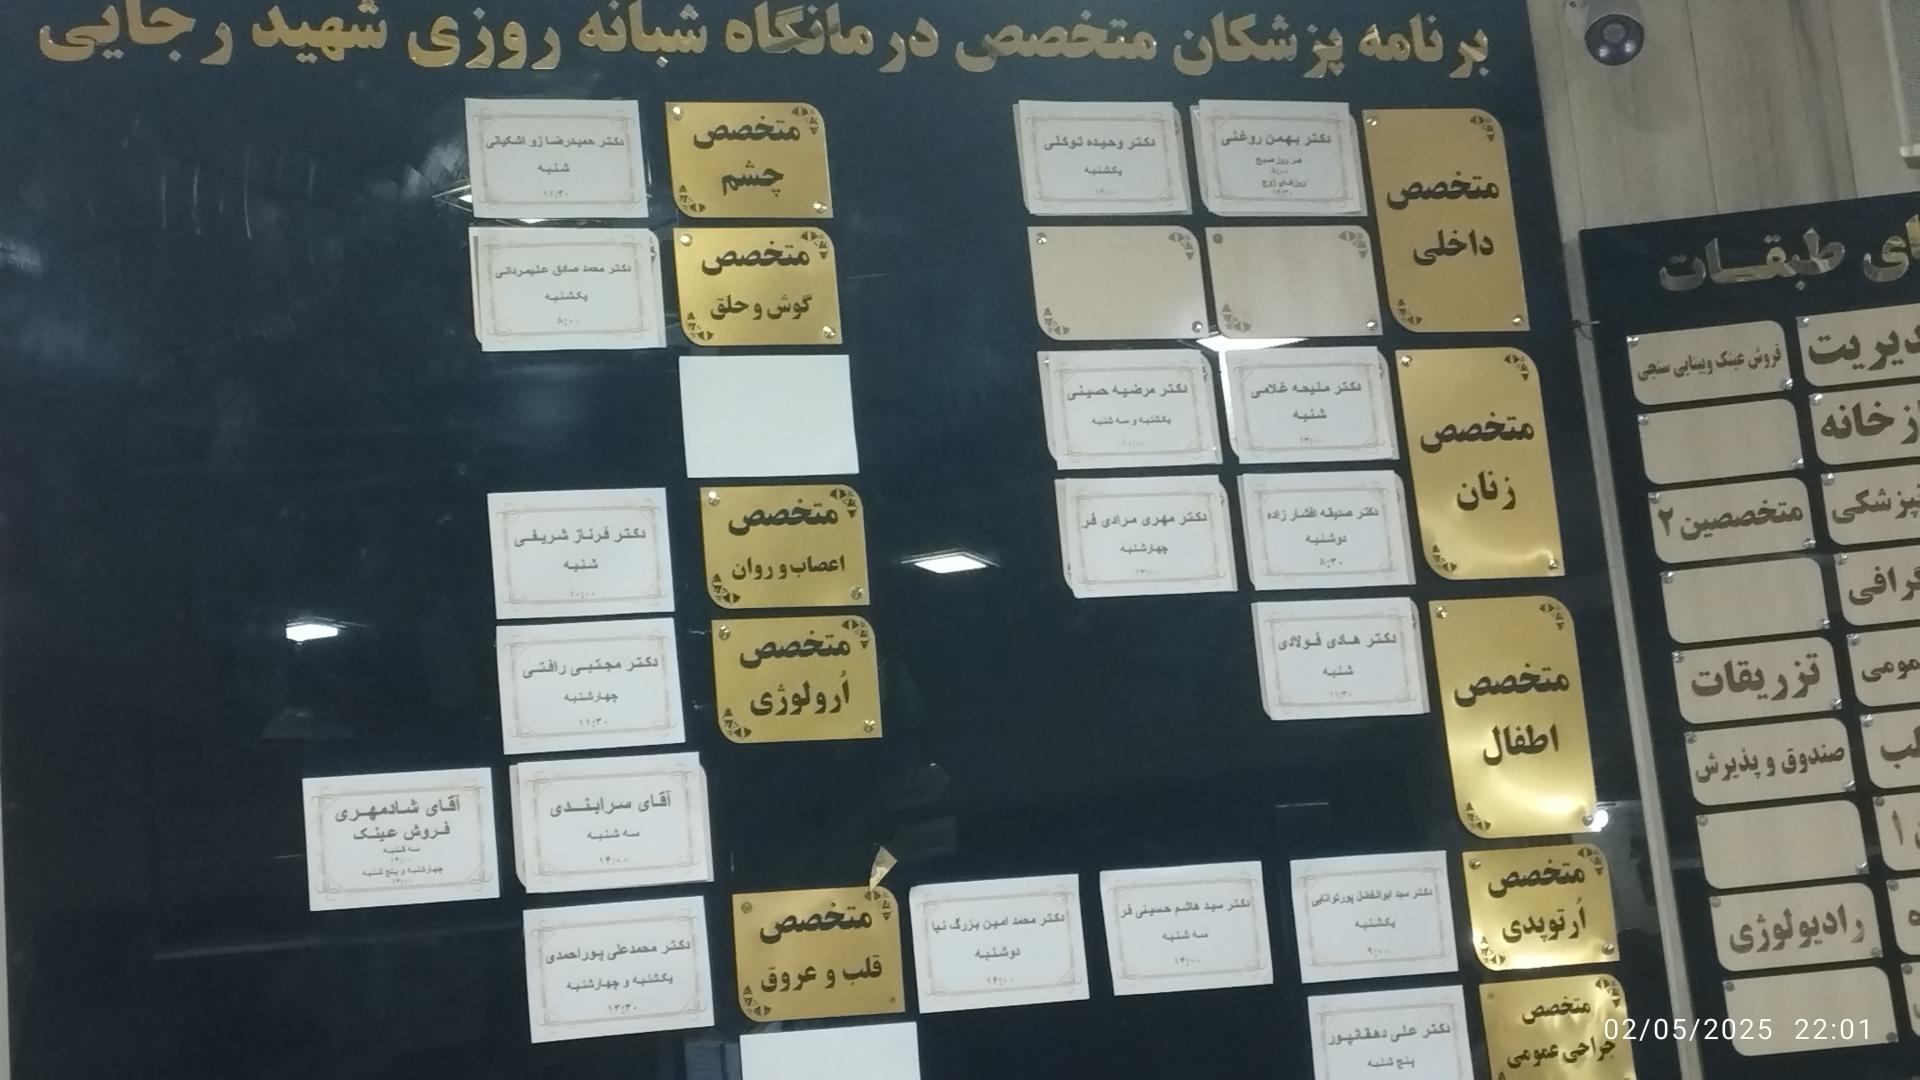 برنامه پزشکان متخصص درمانگاه شبانه روزی شهید رجایی
متخصص
داخلی
دکتر بهمن روغنی
هر روز صبح
۸:۰۰
روزهای زوج
دکتر وحیده توکلی
یکشنبه
متخصص
زنان
دکتر ملیحه غلامی
شنبه
۱۳:۰۰
دکتر مرضیه حسینی
یکشنبه و سه شنبه
۱۰:۰۰
دکتر صدیقه افشار زاده
دوشنبه
۸:۳۰
دکتر مهری مرادی فر
چهارشنبه
متخصص
اطفال
دکتر هادی فولادی
شنبه
۱۱:۳۰
متخصص
اُرتوپدی
دکتر سید ابوالفضل پورتولایی
یکشنبه
۹:۰۰
دکتر سید هاشم حسینی فر
سه شنبه
۱۴:۰۰
دکتر محمد امین بزرگ نیا
دوشنبه
۱۶:۰۰
متخصص
جراحی عمومی
دکتر علی دهقانپور
پنج شنبه
متخصص
چشم
دکتر حمیدرضا زو اشکیانی
شنبه
۱۱:۳۰
متخصص
گوش و حلق
دکتر محمد صادق علیمردانی
یکشنبه
۸:۰۰
متخصص
اعصاب و روان
دکتر فرناز شریفی
شنبه
۱۰:۰۰
متخصص
اُرولوژی
دکتر مجتبی رافتی
چهارشنبه
۱۱:۳۰
آقای سرابندی
سه شنبه
۱۴:۰۰
آقای شادمهری
فروش عینک
سه شنبه
چهارشنبه و پنج شنبه
متخصص
قلب و عروق
دکتر محمدعلی پوراحمدی
یکشنبه و چهارشنبه
۱۳:۳۰
ای طبقات
دیریت
فروش عینک وبینایی سنجی
زخانه
پزشکی
متخصصین ۲
گرافی
مومی
تزریقات
لب
صندوق و پذیرش
۱
ه
رادیولوژی
02/05/2025 22:01